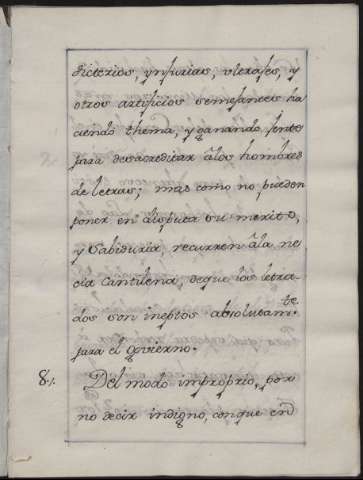 dicterios, ynjurias, vltrajes, y
otros artificios semejantes ha
ciendo thema, y ganando jente
para desacreditar álos hombres
de letras; mas como no pueden
poner en disputa su merito,
y Sabiduria, recurren ála ne
cia Cantilena, deque los letra-
dos son ineptos absolutam.te
para el govierno.
8. Del modo improprio, por
no decir indigno, conque en